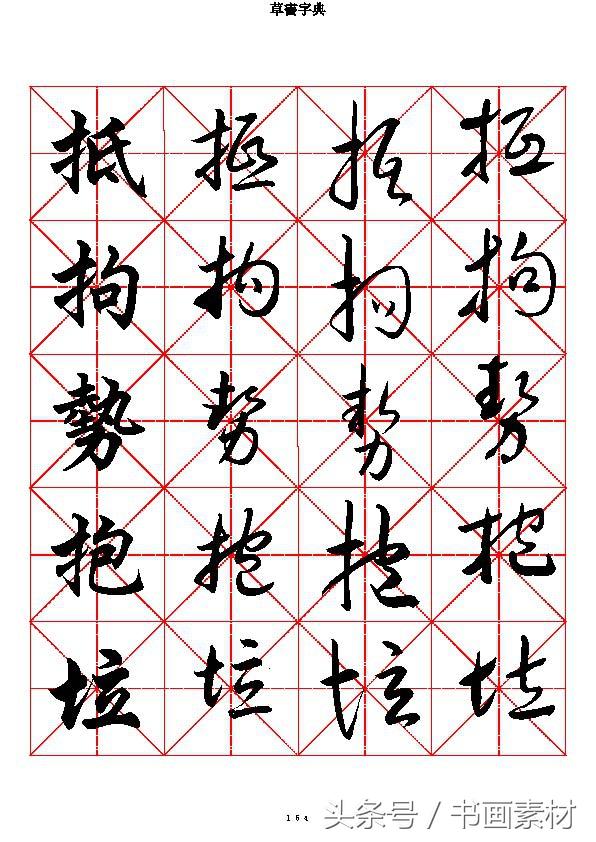 草書字典
抵抵抵抵
拘拘拘拘
勢勢勢勢
抱抱抱抱
垃垃垃垃
164
头条号 / 书画素材